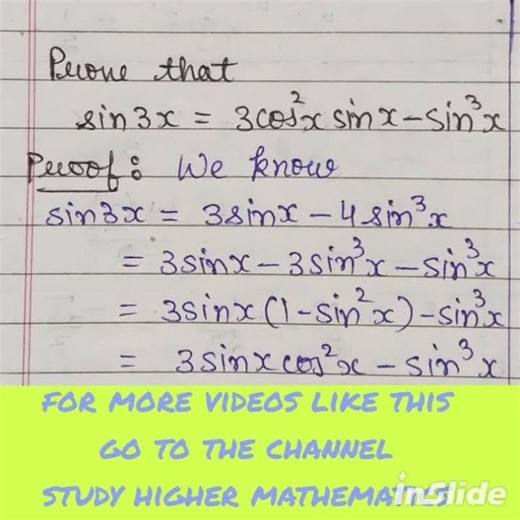 Prove that
sin3x = 3cos²x sinx - sin³x
Proof: We know
sin3x = 3sinx - 4sin³x
= 3sinx - 3sin³x - sin³x
= 3sinx(1-sin²x) - sin³x
= 3sinxcos²x - sin³x
FOR MORE VIDEOS LIKE THIS
GO TO THE CHANNEL
STUDY HIGHER MATHEMATICS
inSlide